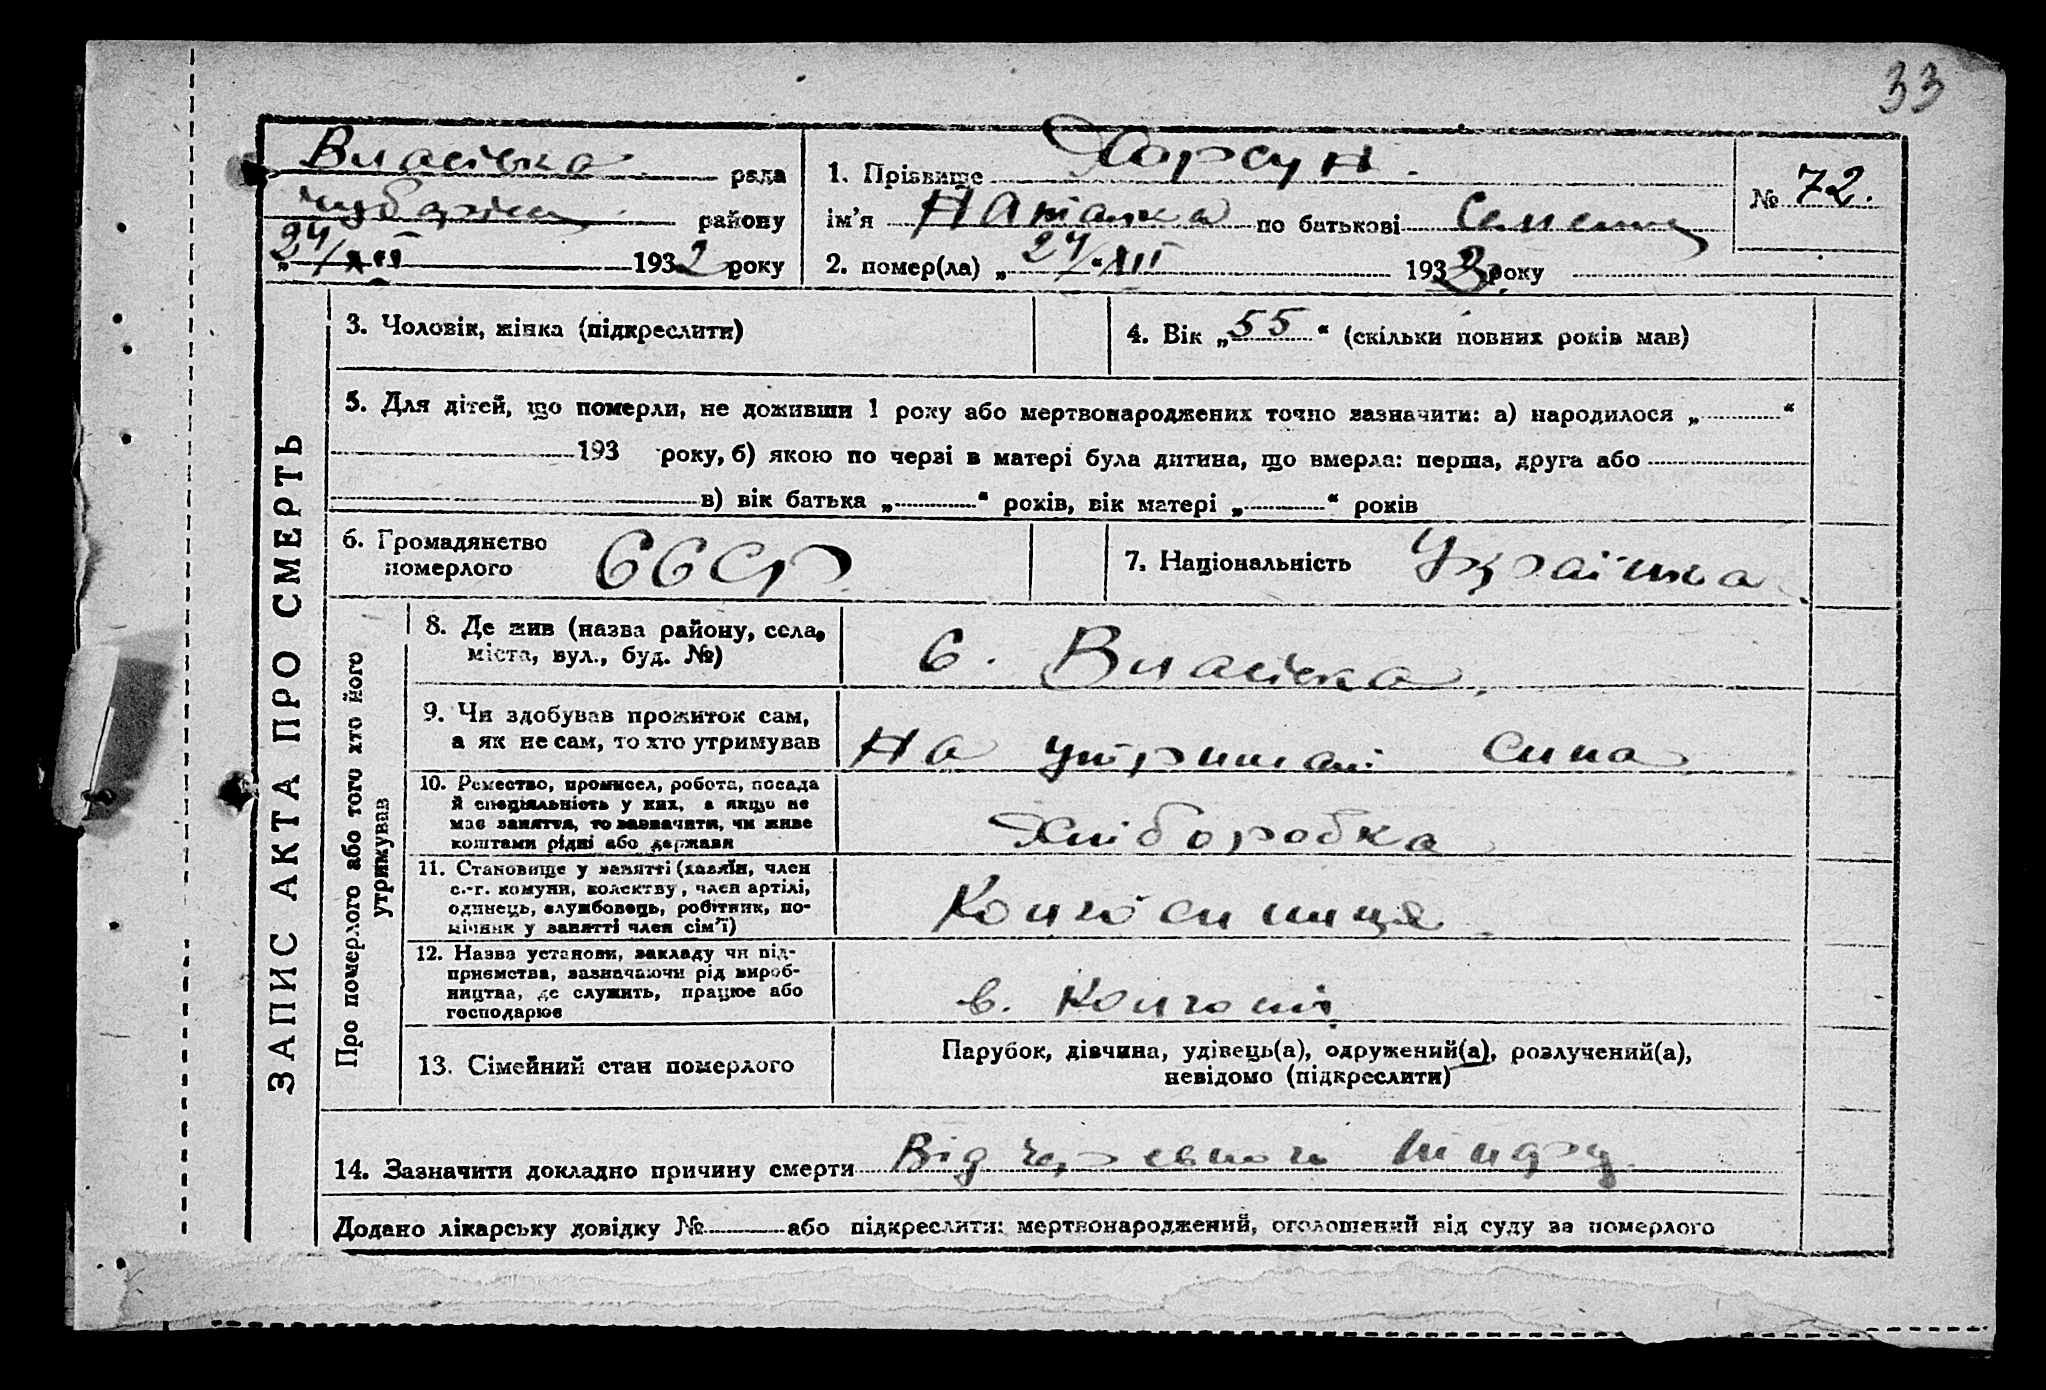 33
Власівка рада
Чубарівськ району
„24/XII 1932 року
1. Прізвище Хорсун
ім'я Наталка по батькові Семенів
2. помер(ла) „24/“XII 1932 року
№ 72.
3. Чоловік, жінка (підкреслити)
4. Вік „55“ (скільки повних років мав)
5. Для дітей, що померли, не доживши 1 року або мертвонароджених точно зазначити: а) народилося „ “
193 року, б) якою по черзі в матері була дитина, що вмерла: перша, друга або
в) вік батька „ “ років, вік матері „ “ років
6. Громадянство
померлого
СССР
7. Національність Українка
ЗАПИС АКТА ПРО СМЕРТЬ
Про померлого або того хто його
утримував
8. Де жив (назва району, села,
міста, вул., буд. №)
С. Власівка
9. Чи здобував прожиток сам,
а як не сам, то хто утримував
На утриман сина
10. Ремество, промисел, робота, посада
й спеціяльність у них, а якщо не
має заняття, то зазначити, чи живе
коштами рідні або держави
Хліборобка
11. Становище у занятті (хазяїн, член
с.-г. комуни, колектву, член артілі,
одинець, службовець, робітник, по-
мічник у занятті член сім'ї)
Колгоспниця
12. Назва установи, закладу чи під-
приємства, зазначаючи рід вироб-
ництва, де служить, працює або
господарює
в. Колгоспі
13. Сімейний стан померлого
Парубок, дівчина, удівець(а), одружений(а), розлучений(а),
невідомо (підкреслити)
14. Зазначити докладно причину смерти Від черевного тифу
Додано лікарську довідку № або підкреслити: мертвонароджений, оголошений від суду за померлого